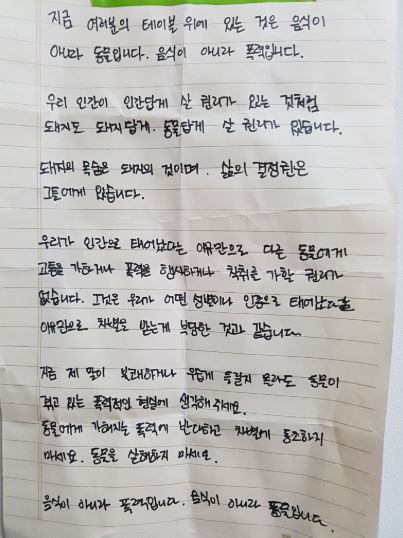 지금 여러분의 테이블 위에 있는 것은 음식이
아니라 동물입니다. 음식이 아니라 폭력입니다.
우리 인간이 인간답게 살 권리가 있는 것처럼
돼지도 돼지답게, 동물답게 살 권리가 있습니다.
돼지의 목숨은 돼지의 것이며, 삶의 결정권은
그들에게 있습니다.
우리가 인간으로 태어났다는 이유만으로 다른 동물에게
고통을 가하거나 폭력을 행사하거나 착취를 가할 권리가
없습니다. 그것은 우리가 어떤 성별이나 인종으로 태어났다는
이유만으로 차별을 받는게 부당한 것과 같습니다.
지금 제 말이 불쾌하거나 우습게 들릴지 몰라도 동물이
겪고 있는 폭력적인 현실에 생각해주세요.
동물에게 가해지는 폭력에 반대하고 차별에 동조하지
마세요. 동물을 살해하지 마세요.
음식이 아니라 폭력입니다. 음식이 아니라 동물입니다.